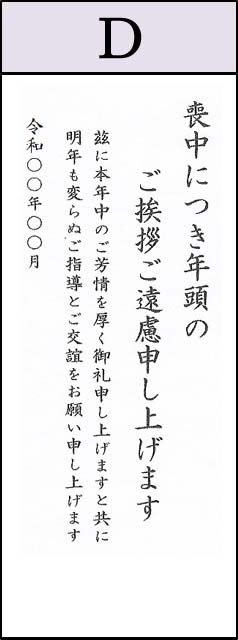 D
喪中につき年頭の
ご挨拶ご遠慮申し上げます
茲に本年中のご芳情を厚く御礼申し上げますと共に
明年も変らぬご指導とご交誼をお願い申し上げます
令和〇〇年〇〇月